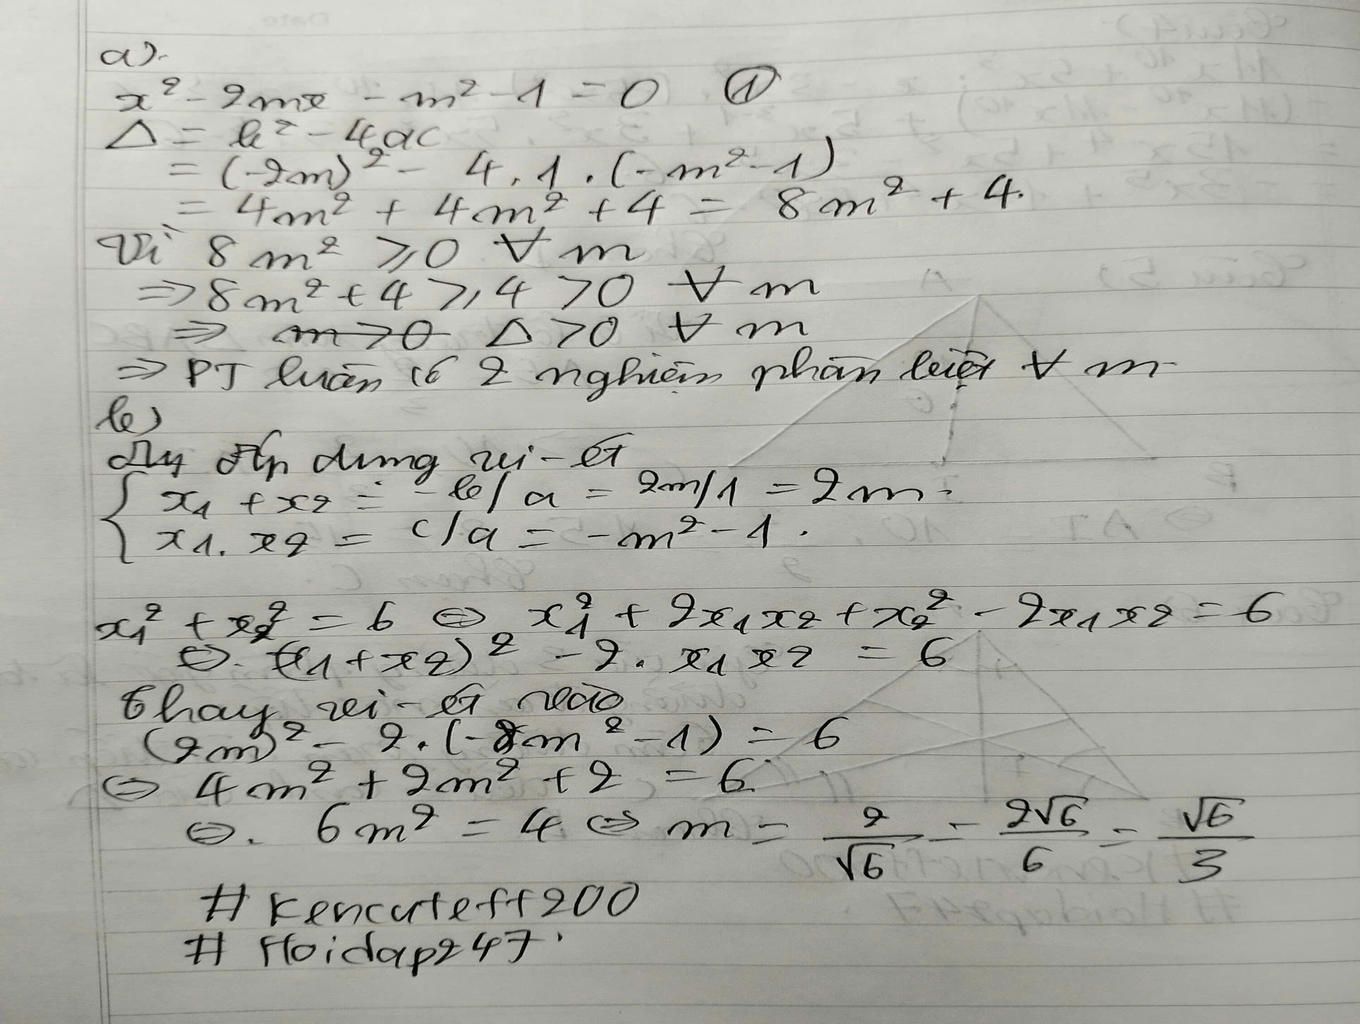 a)
x² - 2mx - m² - 1 = 0 ①
Δ = b² - 4ac
= (-2m)² - 4.1.(-m² - 1)
= 4m² + 4m² + 4 = 8m² + 4.
Vì 8m² ⩾ 0 ∀ m
⇒ 8m² + 4 ⩾ 4 > 0 ∀ m
⇒ Δ > 0 ∀ m
⇒ PT luôn có 2 nghiệm phân biệt ∀ m
b)
Áp dụng vi-ét
{ x1 + x2 = -b/a = 2m/1 = 2m.
x1.x2 = c/a = -m² - 1.
x1² + x2² = 6 ⇔ x1² + 2x1x2 + x2² - 2x1x2 = 6
⇔. (x1 + x2)² - 2.x1x2 = 6
Thay vi-ét vào
(2m)² - 2.(-m² - 1) = 6
⇔ 4m² + 2m² + 2 = 6
⇔. 6m² = 4 ⇔ m = 2/√6 = 2√6/6 = √6/3
# Kencuteff200
# Hoidap247